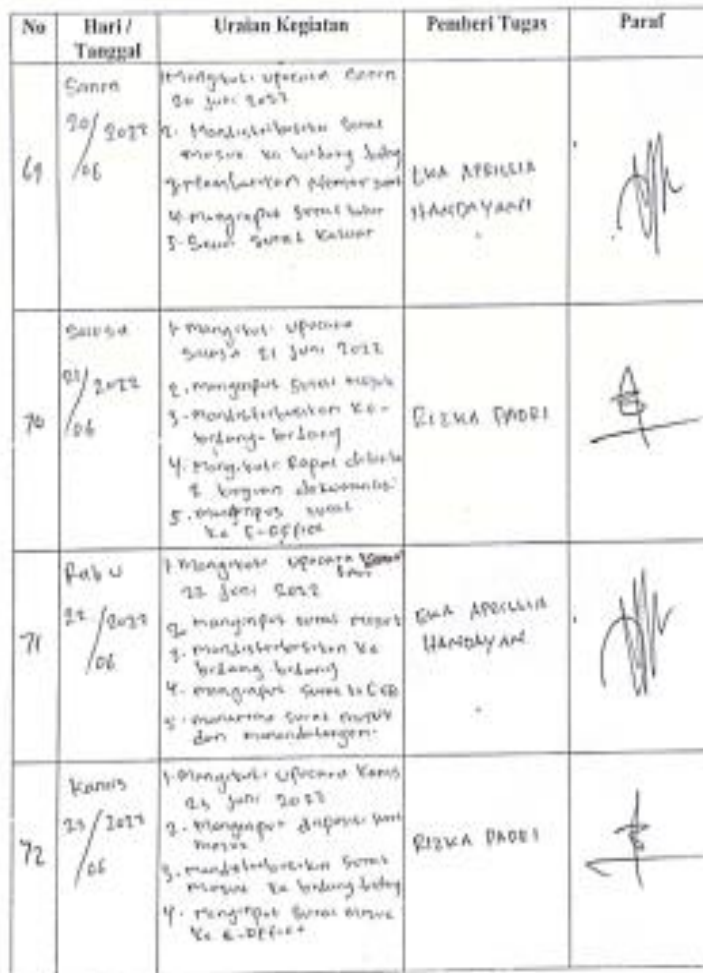 No Hari / Tanggal Uraian Kegiatan Pemberi Tugas Paraf
69
Senin
20/2022
/06
1. Mengikuti upacara Senin
20 Juni 2022
2. Mendistribusikan Surat
masuk ke bidang bidang
3. Memberikan Nomor Surat
4. Menginput Surat keluar
5. Scan Surat Keluar
EKA APRILLIA
HANDAYANI
70
Selasa
21/2022
/06
1. Mengikuti upacara
Selasa 21 Juni 2022
2. menginput Surat masuk
3. Mendistribusikan ke-
bidang-bidang
4. Mengikuti Rapat
bagian dokumentasi
5. menginput surat
ke E-Office
RIZKA PADRI
71
Rabu
22/2022
/06
1. Mengikuti upacara
22 Juni 2022
2. menginput surat masuk
3. mendistribusikan ke
bidang bidang
4. menginput surat
5. menerima surat masuk
dan menandatangani
EKA APRILLIA
HANDAYAN
72
Kamis
23/2022
/06
1. Mengikuti upacara Kamis
23 Juni 2022
2. Menginput disposisi surat
masuk
3. mendistribusikan Surat
masuk ke bidang bidang
4. menginput Surat masuk
ke E-Office
RIZKA PADRI